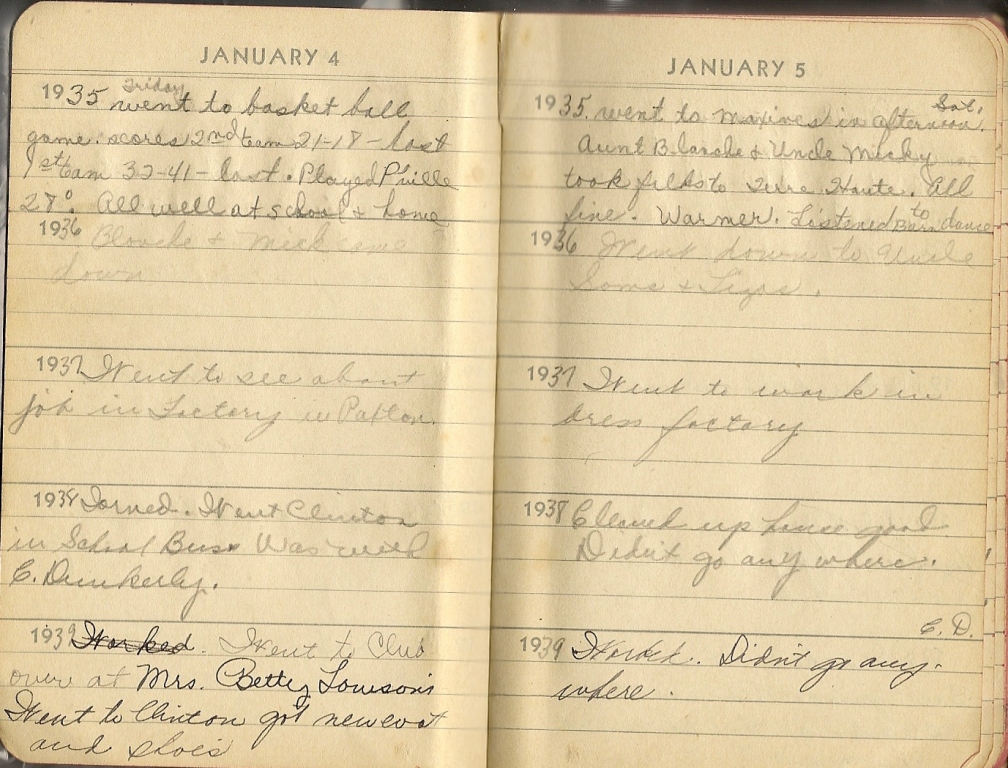 JANUARY 4
1935 Friday went to basket ball
game. scores 2nd team 21-18 - lost
1st team 32-41 - lost. Played P'ville
27°. All well at school & home
1936 Blanche & Mick came
down
1937 Went to see about
job in Factory in Paxton.
1938 Went Clinton
in School Bus. Was with
C. Dunkerly.
1939 Worked. Went to Club
over at Mrs. Betty
Went to Clinton got new coat
and shoes
JANUARY 5
1935. went to Maxines in afternoon. Sat.
Aunt Blanche & Uncle Micky
took folks to Terre Haute. All
fine. Warmer. Listened to Barn dance
1936 Went down to Uncle
Soms &
1937 Went to work in
dress factory
1938 Cleaned up house good
Didn't go any where.
C. D.
1939 Worked. Didn't go any-
where.